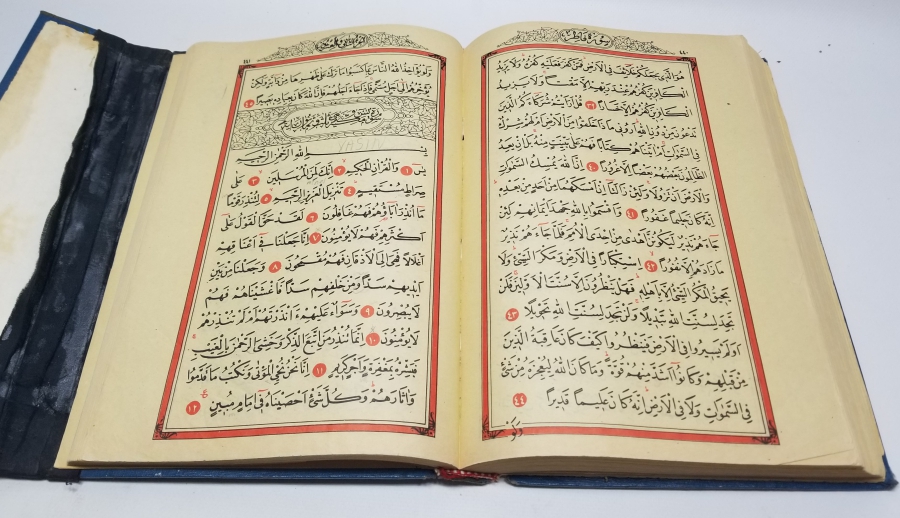 سُورَةُ فَاطِرٍ
٤٤٠
هُوَ الَّذِي جَعَلَكُمْ خَلَائِفَ فِي الْأَرْضِ فَمَنْ كَفَرَ فَعَلَيْهِ كُفْرُهُ وَلَا يَزِيدُ
الْكَافِرِينَ كُفْرُهُمْ عِنْدَ رَبِّهِمْ إِلَّا مَقْتًا وَلَا يَزِيدُ
الْكَافِرِينَ كُفْرُهُمْ إِلَّا خَسَارًا ٣٩ قُلْ أَرَأَيْتُمْ شُرَكَاءَكُمُ الَّذِينَ
تَدْعُونَ مِنْ دُونِ اللَّهِ أَرُونِي مَاذَا خَلَقُوا مِنَ الْأَرْضِ أَمْ لَهُمْ شِرْكٌ
فِي السَّمٰوَاتِ أَمْ آتَيْنَاهُمْ كِتَابًا فَهُمْ عَلَى بَيِّنَتٍ مِنْهُ بَلْ إِنْ يَعِدُ
الظَّالِمُونَ بَعْضُهُمْ بَعْضًا إِلَّا غُرُورًا ٤٠ إِنَّ اللَّهَ يُمْسِكُ السَّمٰوَاتِ
وَالْأَرْضَ أَنْ تَزُولَا وَلَئِنْ زَالَتَا إِنْ أَمْسَكَهُمَا مِنْ أَحَدٍ مِنْ بَعْدِهِ
إِنَّهُ كَانَ حَلِيمًا غَفُورًا ٤١ وَأَقْسَمُوا بِاللَّهِ جَهْدَ أَيْمَانِهِمْ لَئِنْ
جَاءَهُمْ نَذِيرٌ لَيَكُونُنَّ أَهْدَى مِنْ إِحْدَى الْأُمَمِ فَلَمَّا جَاءَهُمْ نَذِيرٌ
مَا زَادَهُمْ إِلَّا نُفُورًا ٤٢ اسْتِكْبَارًا فِي الْأَرْضِ وَمَكْرَ السَّيِّئِ وَلَا
يَحِيقُ الْمَكْرُ السَّيِّئُ إِلَّا بِأَهْلِهِ فَهَلْ يَنْظُرُونَ إِلَّا سُنَّتَ الْأَوَّلِينَ فَلَنْ
تَجِدَ لِسُنَّتِ اللَّهِ تَبْدِيلًا وَلَنْ تَجِدَ لِسُنَّتِ اللَّهِ تَحْوِيلًا ٤٣
أَوَلَمْ يَسِيرُوا فِي الْأَرْضِ فَيَنْظُرُوا كَيْفَ كَانَ عَاقِبَةُ الَّذِينَ
مِنْ قَبْلِهِمْ وَكَانُوا أَشَدَّ مِنْهُمْ قُوَّةً وَمَا كَانَ اللَّهُ لِيُعْجِزَهُ مِنْ شَيْءٍ
فِي السَّمٰوَاتِ وَلَا فِي الْأَرْضِ إِنَّهُ كَانَ عَلِيمًا قَدِيرًا ٤٤
وَلَوْ
٤٤١
وَلَوْ يُؤَاخِذُ اللَّهُ النَّاسَ بِمَا كَسَبُوا مَا تَرَكَ عَلَى ظَهْرِهَا مِنْ دَابَّةٍ وَلٰكِنْ
يُؤَخِّرُهُمْ إِلَى أَجَلٍ مُسَمًّى فَإِذَا جَاءَ أَجَلُهُمْ فَإِنَّ اللَّهَ كَانَ بِعِبَادِهِ بَصِيرًا ٤٥
YASİN
بِسْمِ اللَّهِ الرَّحْمٰنِ الرَّحِيمِ
يٰس ١ وَالْقُرْآنِ الْحَكِيمِ ٢ إِنَّكَ لَمِنَ الْمُرْسَلِينَ ٣ عَلَى
صِرَاطٍ مُسْتَقِيمٍ ٤ تَنْزِيلَ الْعَزِيزِ الرَّحِيمِ ٥ لِتُنْذِرَ قَوْمًا
مَا أُنْذِرَ آبَاؤُهُمْ فَهُمْ غَافِلُونَ ٦ لَقَدْ حَقَّ الْقَوْلُ عَلَى
أَكْثَرِهِمْ فَهُمْ لَا يُؤْمِنُونَ ٧ إِنَّا جَعَلْنَا فِي أَعْنَاقِهِمْ
أَغْلَالًا فَهِيَ إِلَى الْأَذْقَانِ فَهُمْ مُقْمَحُونَ ٨ وَجَعَلْنَا مِنْ بَيْنِ
أَيْدِيهِمْ سَدًّا وَمِنْ خَلْفِهِمْ سَدًّا فَأَغْشَيْنَاهُمْ فَهُمْ
لَا يُبْصِرُونَ ٩ وَسَوَاءٌ عَلَيْهِمْ ءَأَنْذَرْتَهُمْ أَمْ لَمْ تُنْذِرْهُمْ
لَا يُؤْمِنُونَ ١٠ إِنَّمَا تُنْذِرُ مَنِ اتَّبَعَ الذِّكْرَ وَخَشِيَ الرَّحْمٰنَ بِالْغَيْبِ
فَبَشِّرْهُ بِمَغْفِرَةٍ وَأَجْرٍ كَرِيمٍ ١١ إِنَّا نَحْنُ نُحْيِ الْمَوْتَى وَنَكْتُبُ مَا قَدَّمُوا
وَآثَارَهُمْ وَكُلَّ شَيْءٍ أَحْصَيْنَاهُ فِي إِمَامٍ مُبِينٍ ١٢